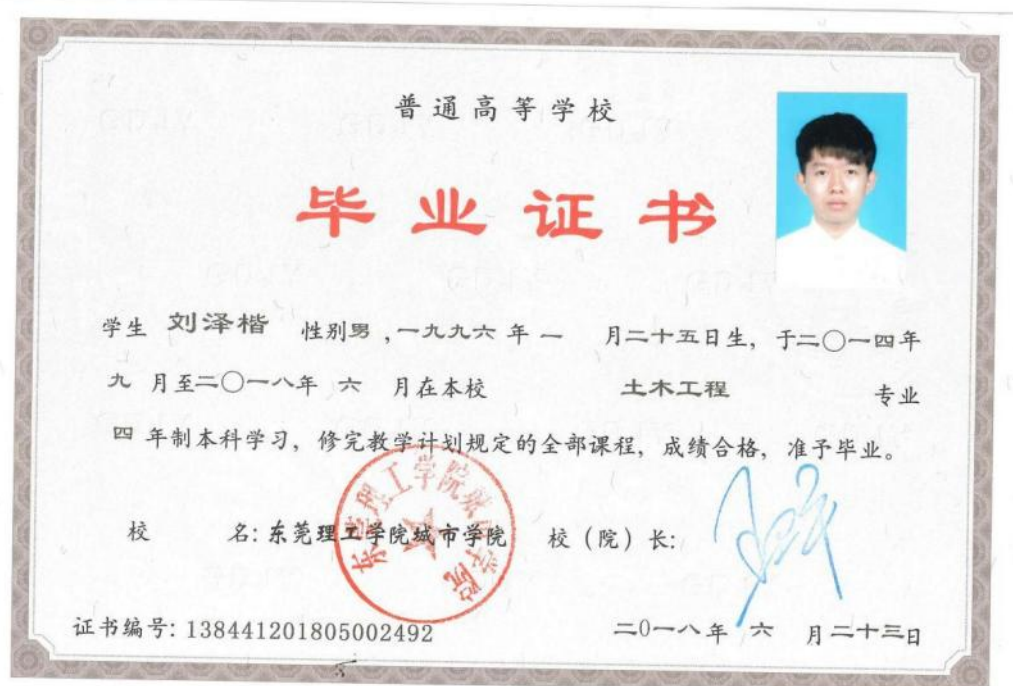 普通高等学校
毕业证书
学生 刘泽楷 性别男，一九九六年一 月二十五日生，于二〇一四年
九 月至二〇一八年 六 月在本校 土木工程 专业
四 年制本科学习，修完教学计划规定的全部课程，成绩合格，准予毕业。
校 名：东莞理工学院城市学院 校（院）长：
东莞理工学院城市学院
证书编号：138441201805002492 二0一八年 六 月二十三日